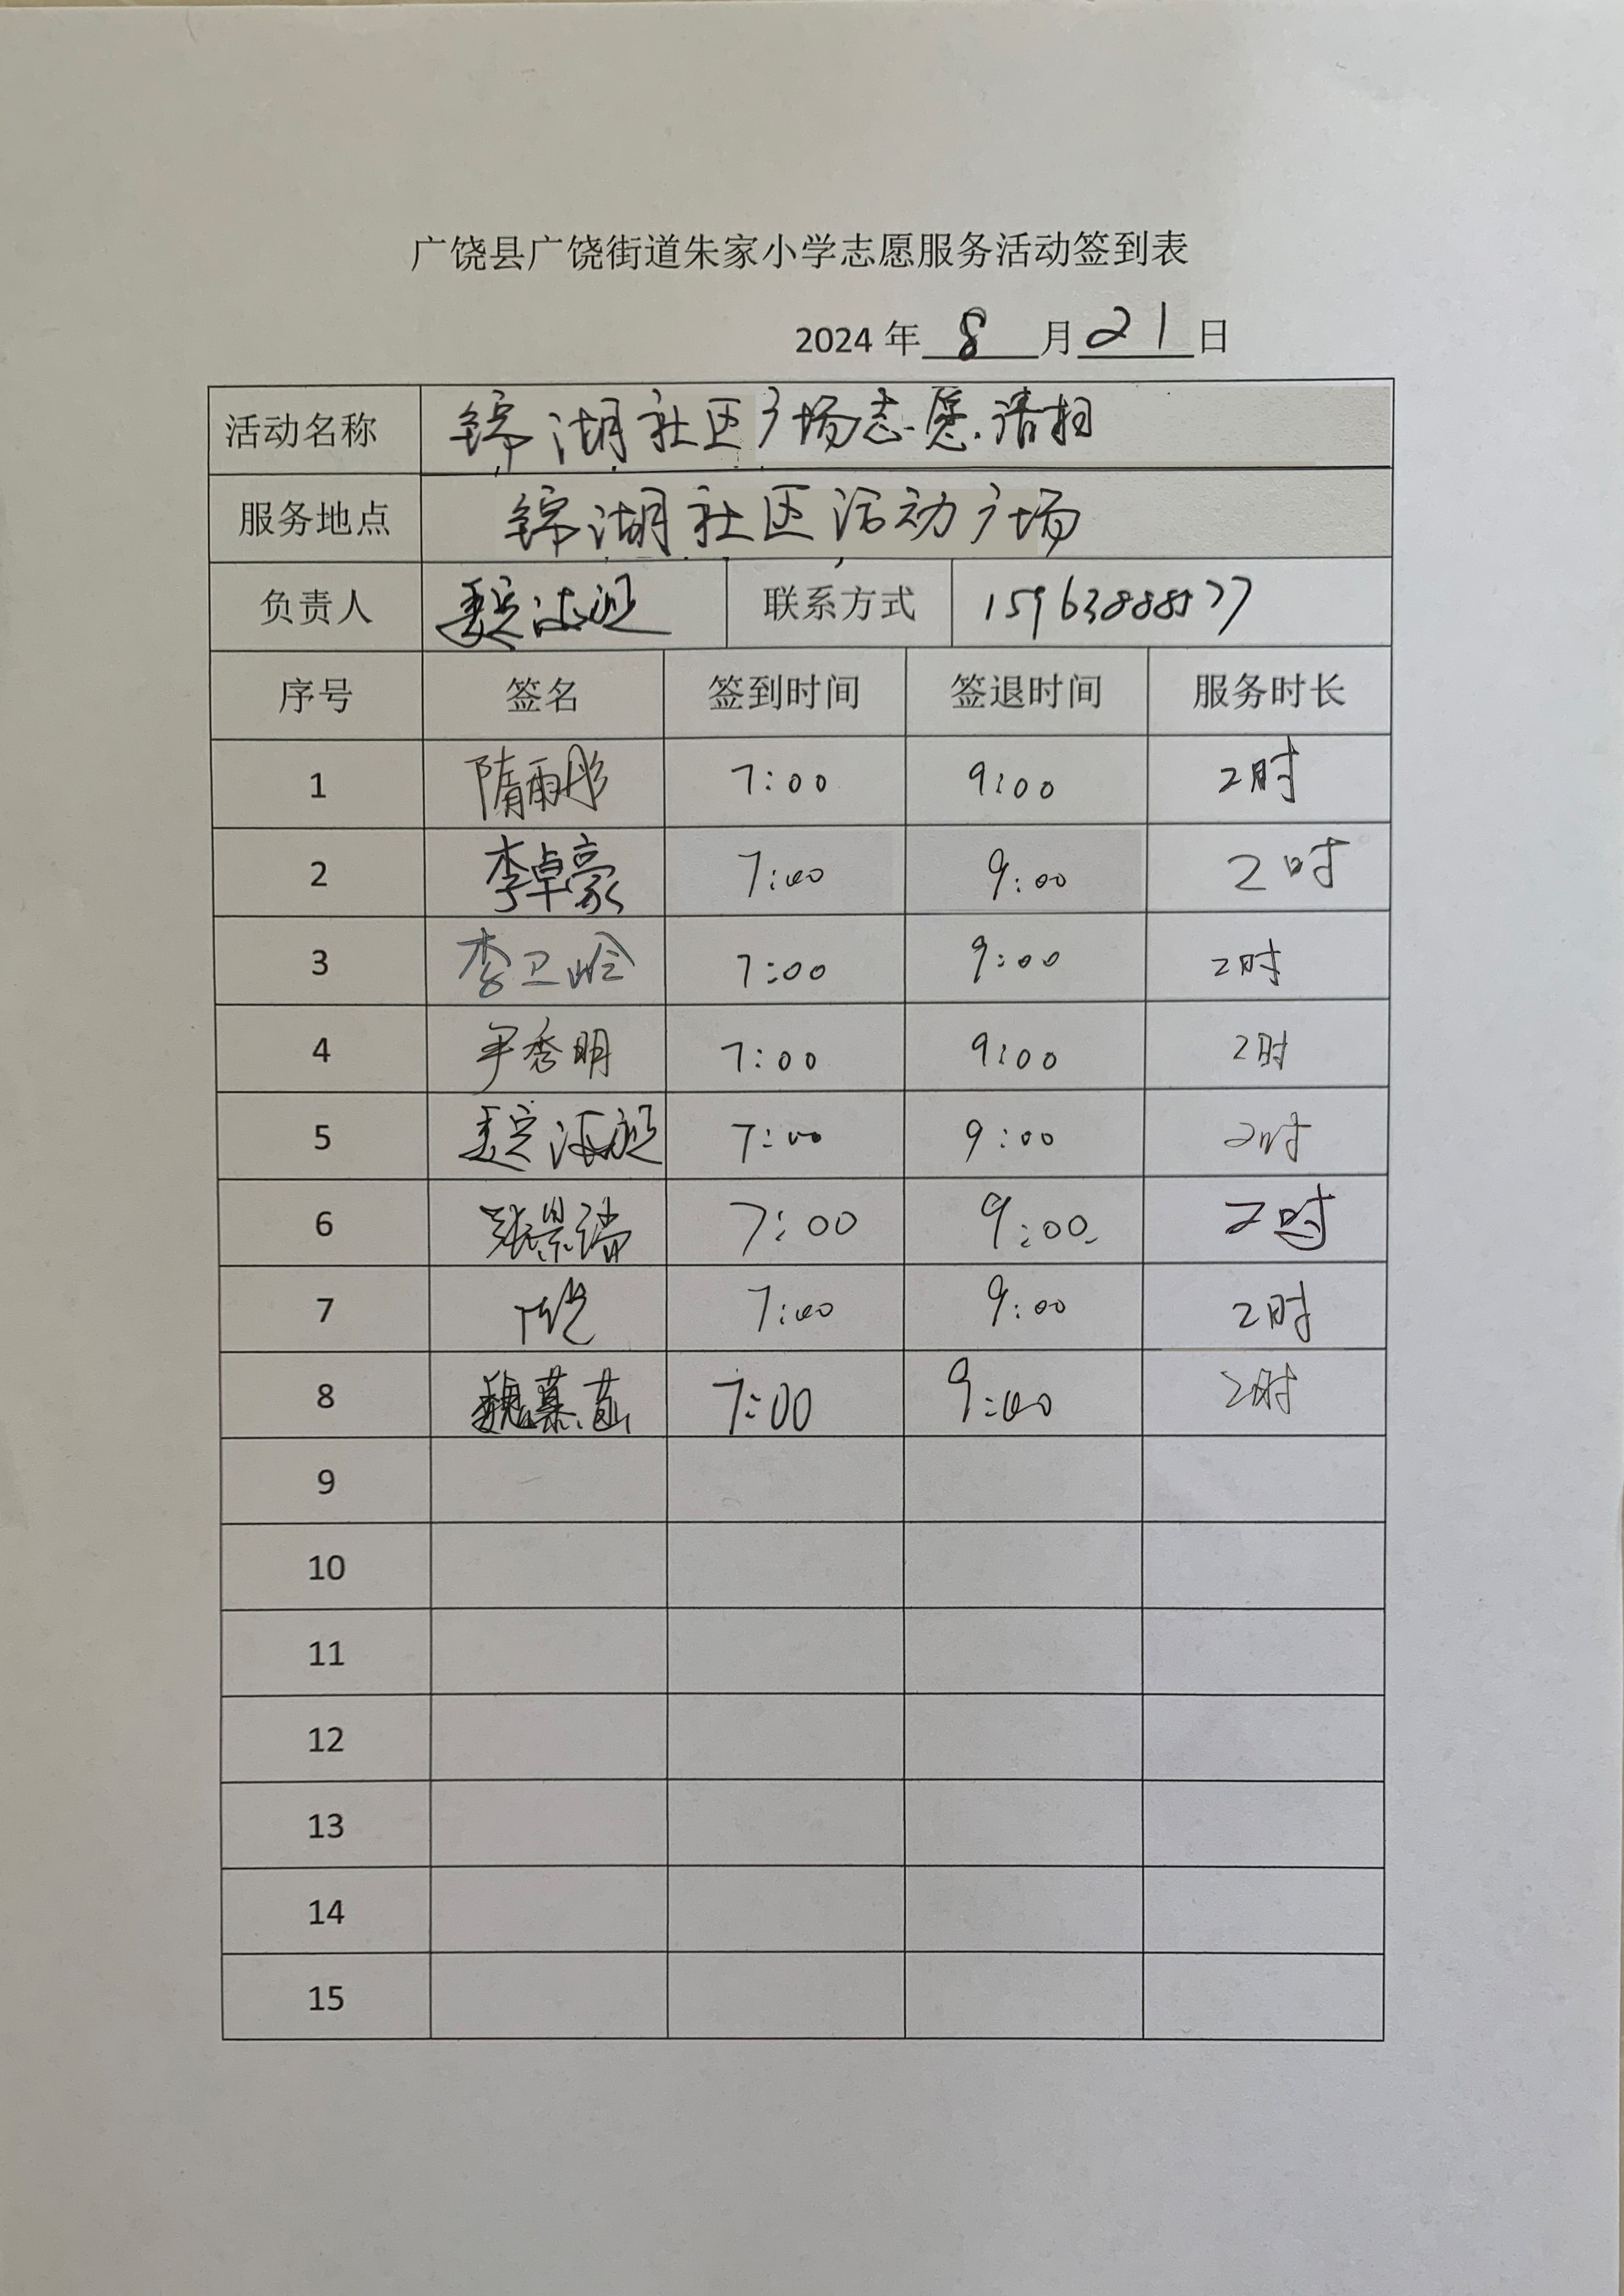 广饶县广饶街道朱家小学志愿服务活动签到表
2024 年 8 月 21 日
活动名称 锦湖社区广场志愿清扫
服务地点 锦湖社区活动广场
负责人 联系方式 15963888577
序号 签名 签到时间 签退时间 服务时长
1 隋雨彤 7:00 9:00 2时
2 李卓豪 7:00 9:00 2时
3 李卫岭 7:00 9:00 2时
4 尹秀明 7:00 9:00 2时
5 7:00 9:00 2时
6 张景瑞 7:00 9:00 2时
7 7:00 9:00 2时
8 魏慕 7:00 9:00 2时
9
10
11
12
13
14
15